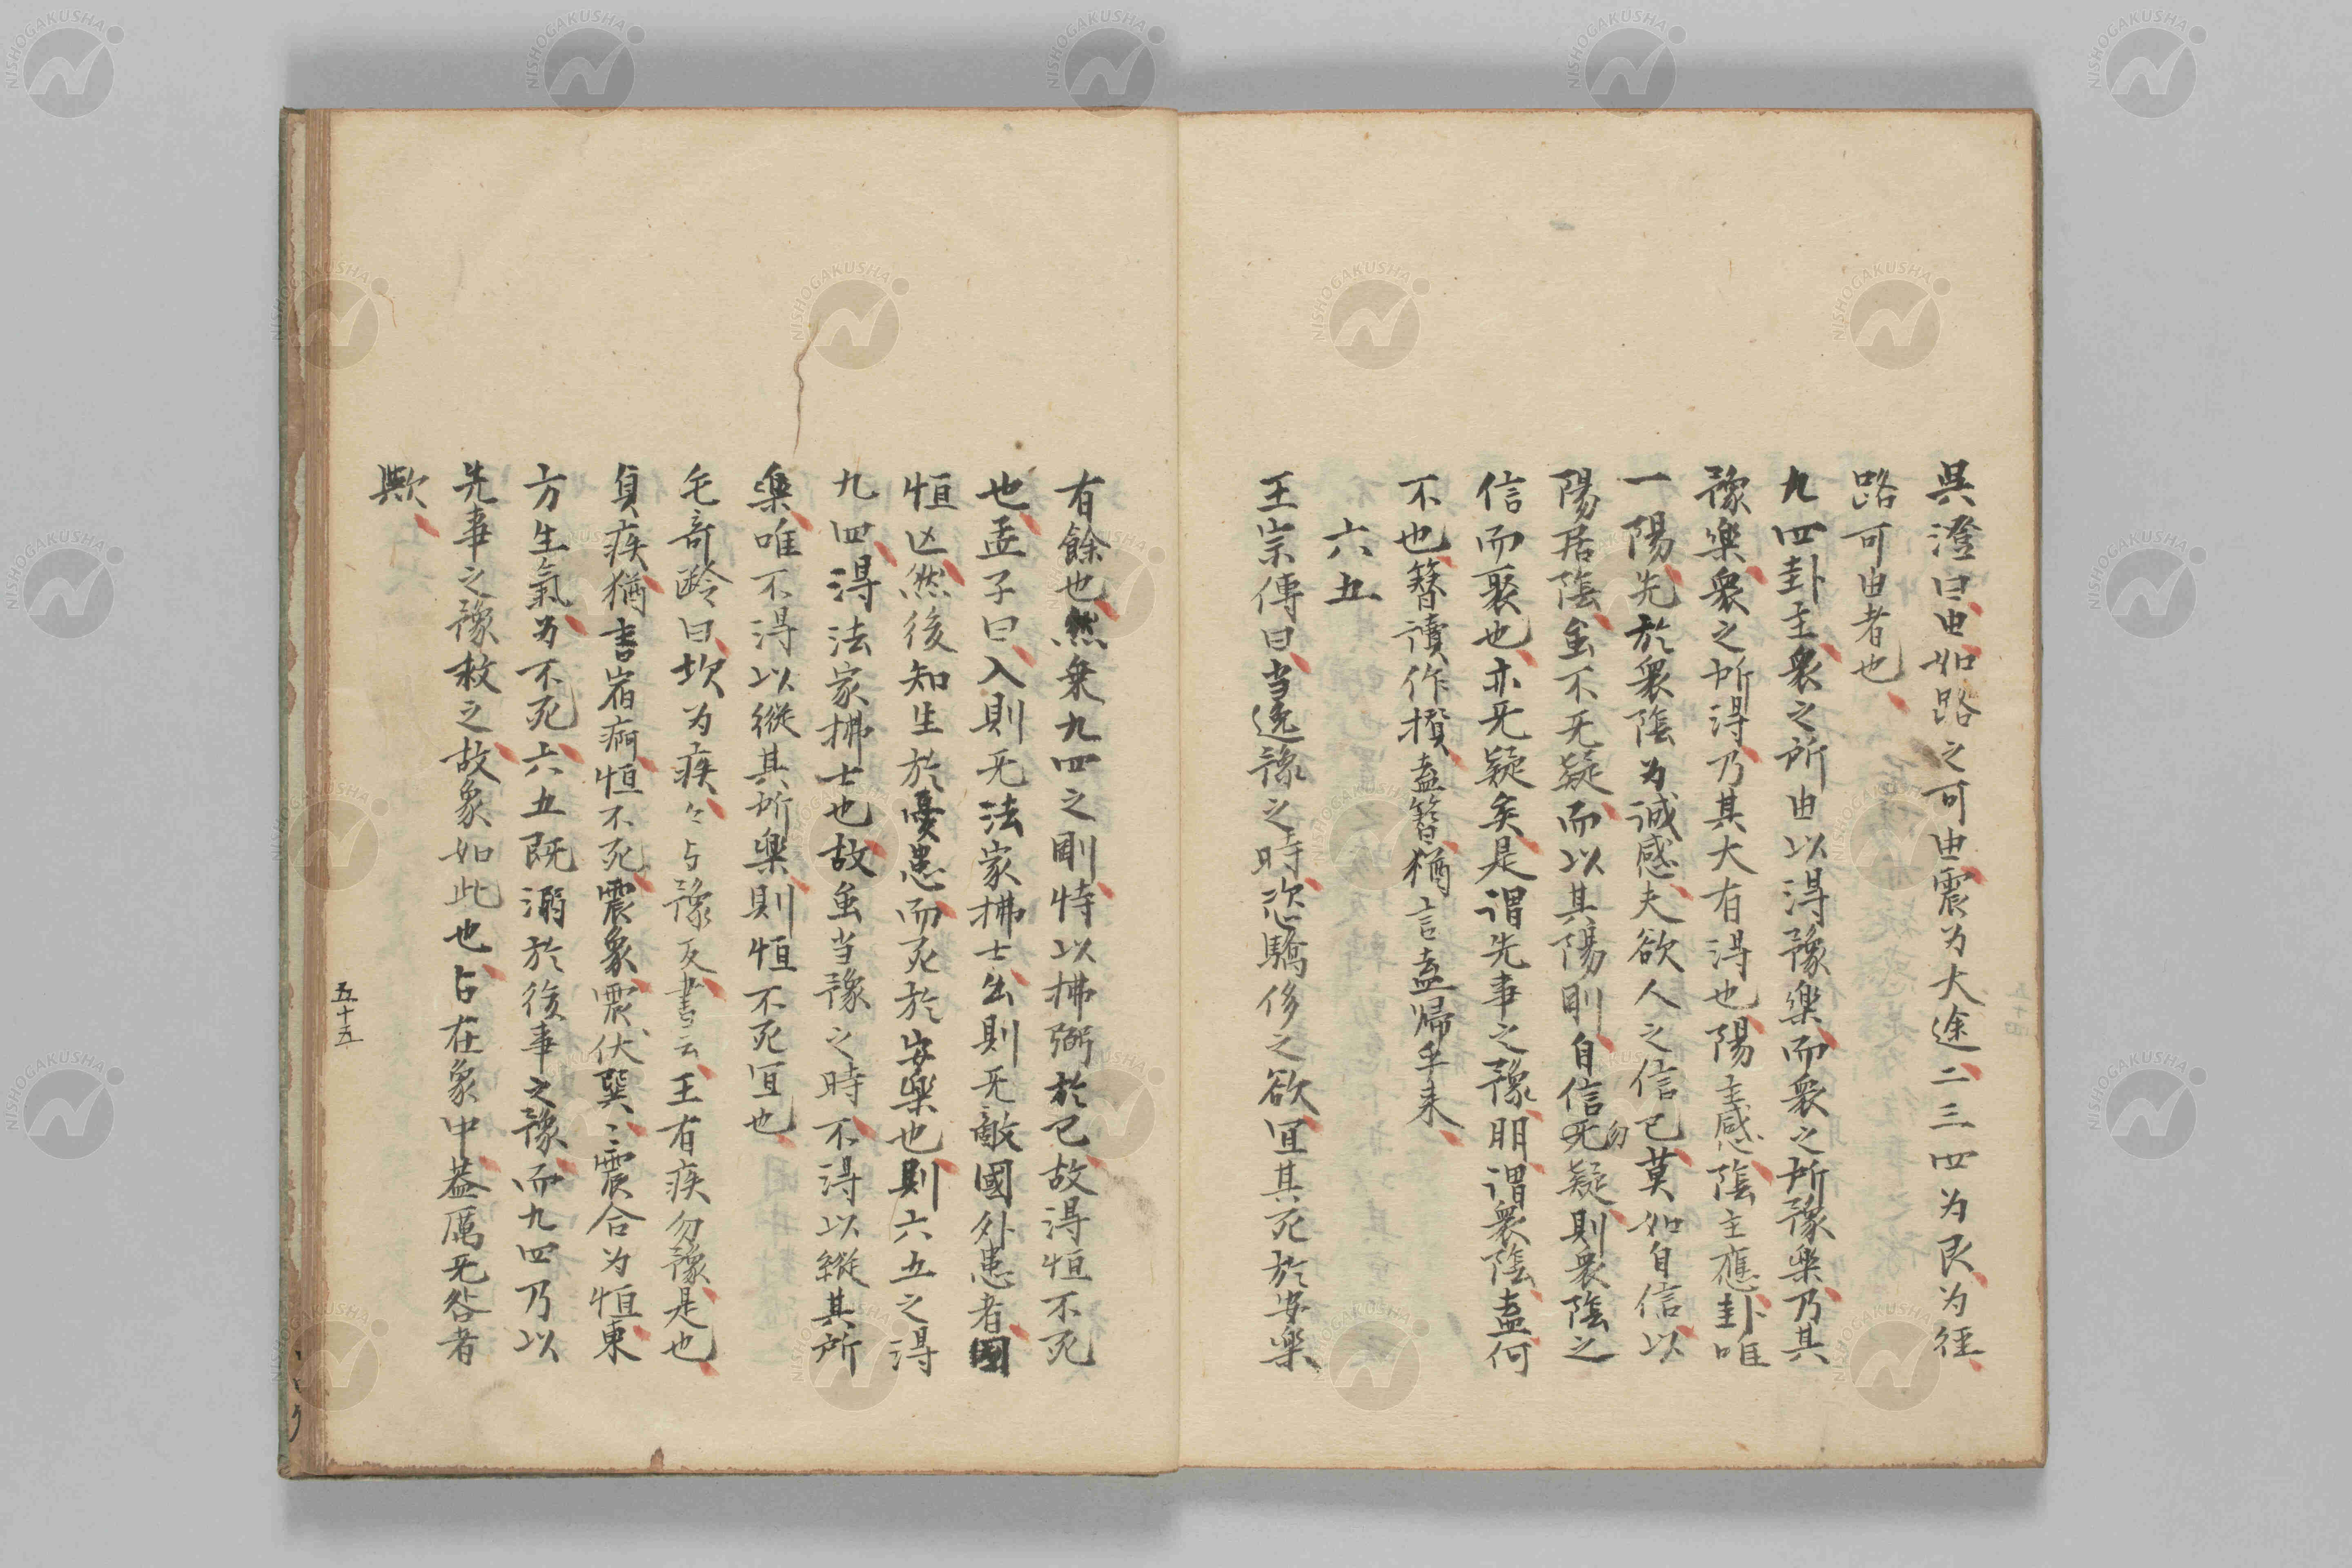 吳澄曰由如路之可由震为大途二三四为艮为径
路可由者也
九四卦主衆之所由以得豫樂而衆之所豫樂乃其
豫樂衆之所得乃其大有得也陽主感陰主應卦唯
一陽先於衆陰为诚感夫欲人之信已莫如自信以
陽居陰虽不无疑而以其陽剛自信无勿疑則衆陰之
信而聚也亦无疑矣是谓先事之豫朋谓衆陰盍何
不也簪讀作攅盍簪猶言盍歸乎来
六五
王宗傳曰当逸豫之時恣驕侈之欲宜其死於安樂
有餘也然乗九四之剛恃以拂弼於已故得恒不死
也孟子曰入則无法家拂士出則无敵國外患者國
恒亡然後知生於憂患而死於安樂也則六五之得
九四得法家拂士也故虽当豫之時不得以縦其所
樂唯不得以縦其所樂則恒不死宜也
毛奇齡曰坎为疾々与豫反書云王有疾勿豫是也
貞疾猶言宿痾恒不死震象震伏巽々震合为恒東
方生氣为不死六五既溺於後事之豫而九四乃以
先事之豫救之故象如此也占在象中葢厲无咎者
歟
五十五
NISHOGAKUSHA